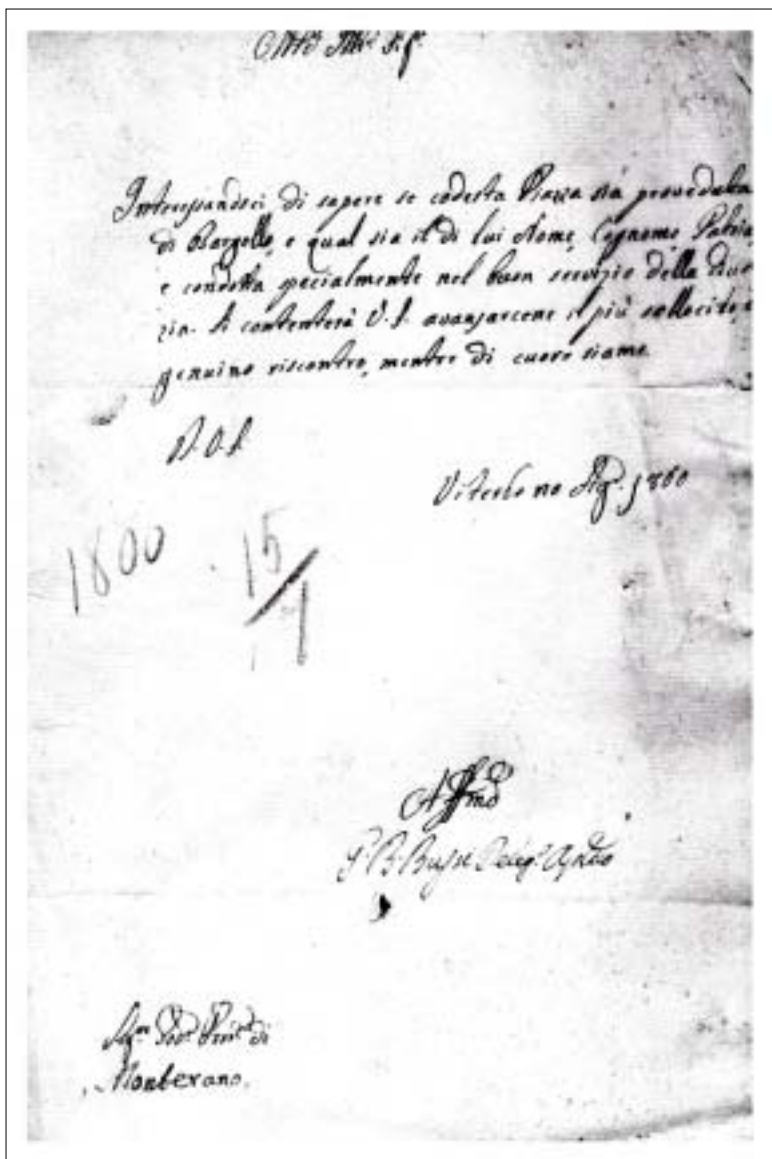 Interessandoci di sapere se codesta Piazza sia proveduta
di Bargello, e qual sia il di lui Nome, Cognome, Patria,
e condotta specialmente nel buon servizio della Giusti
zia. Si contenterà V.S. avanzarcene il più sollecito, e
genuino riscontro, mentre di cuore siamo
D.V.S.
Viterbo 1800
1800 15
Affmo
G. B. Bussi Deleg.
Sig.r Gov.
Monterano.